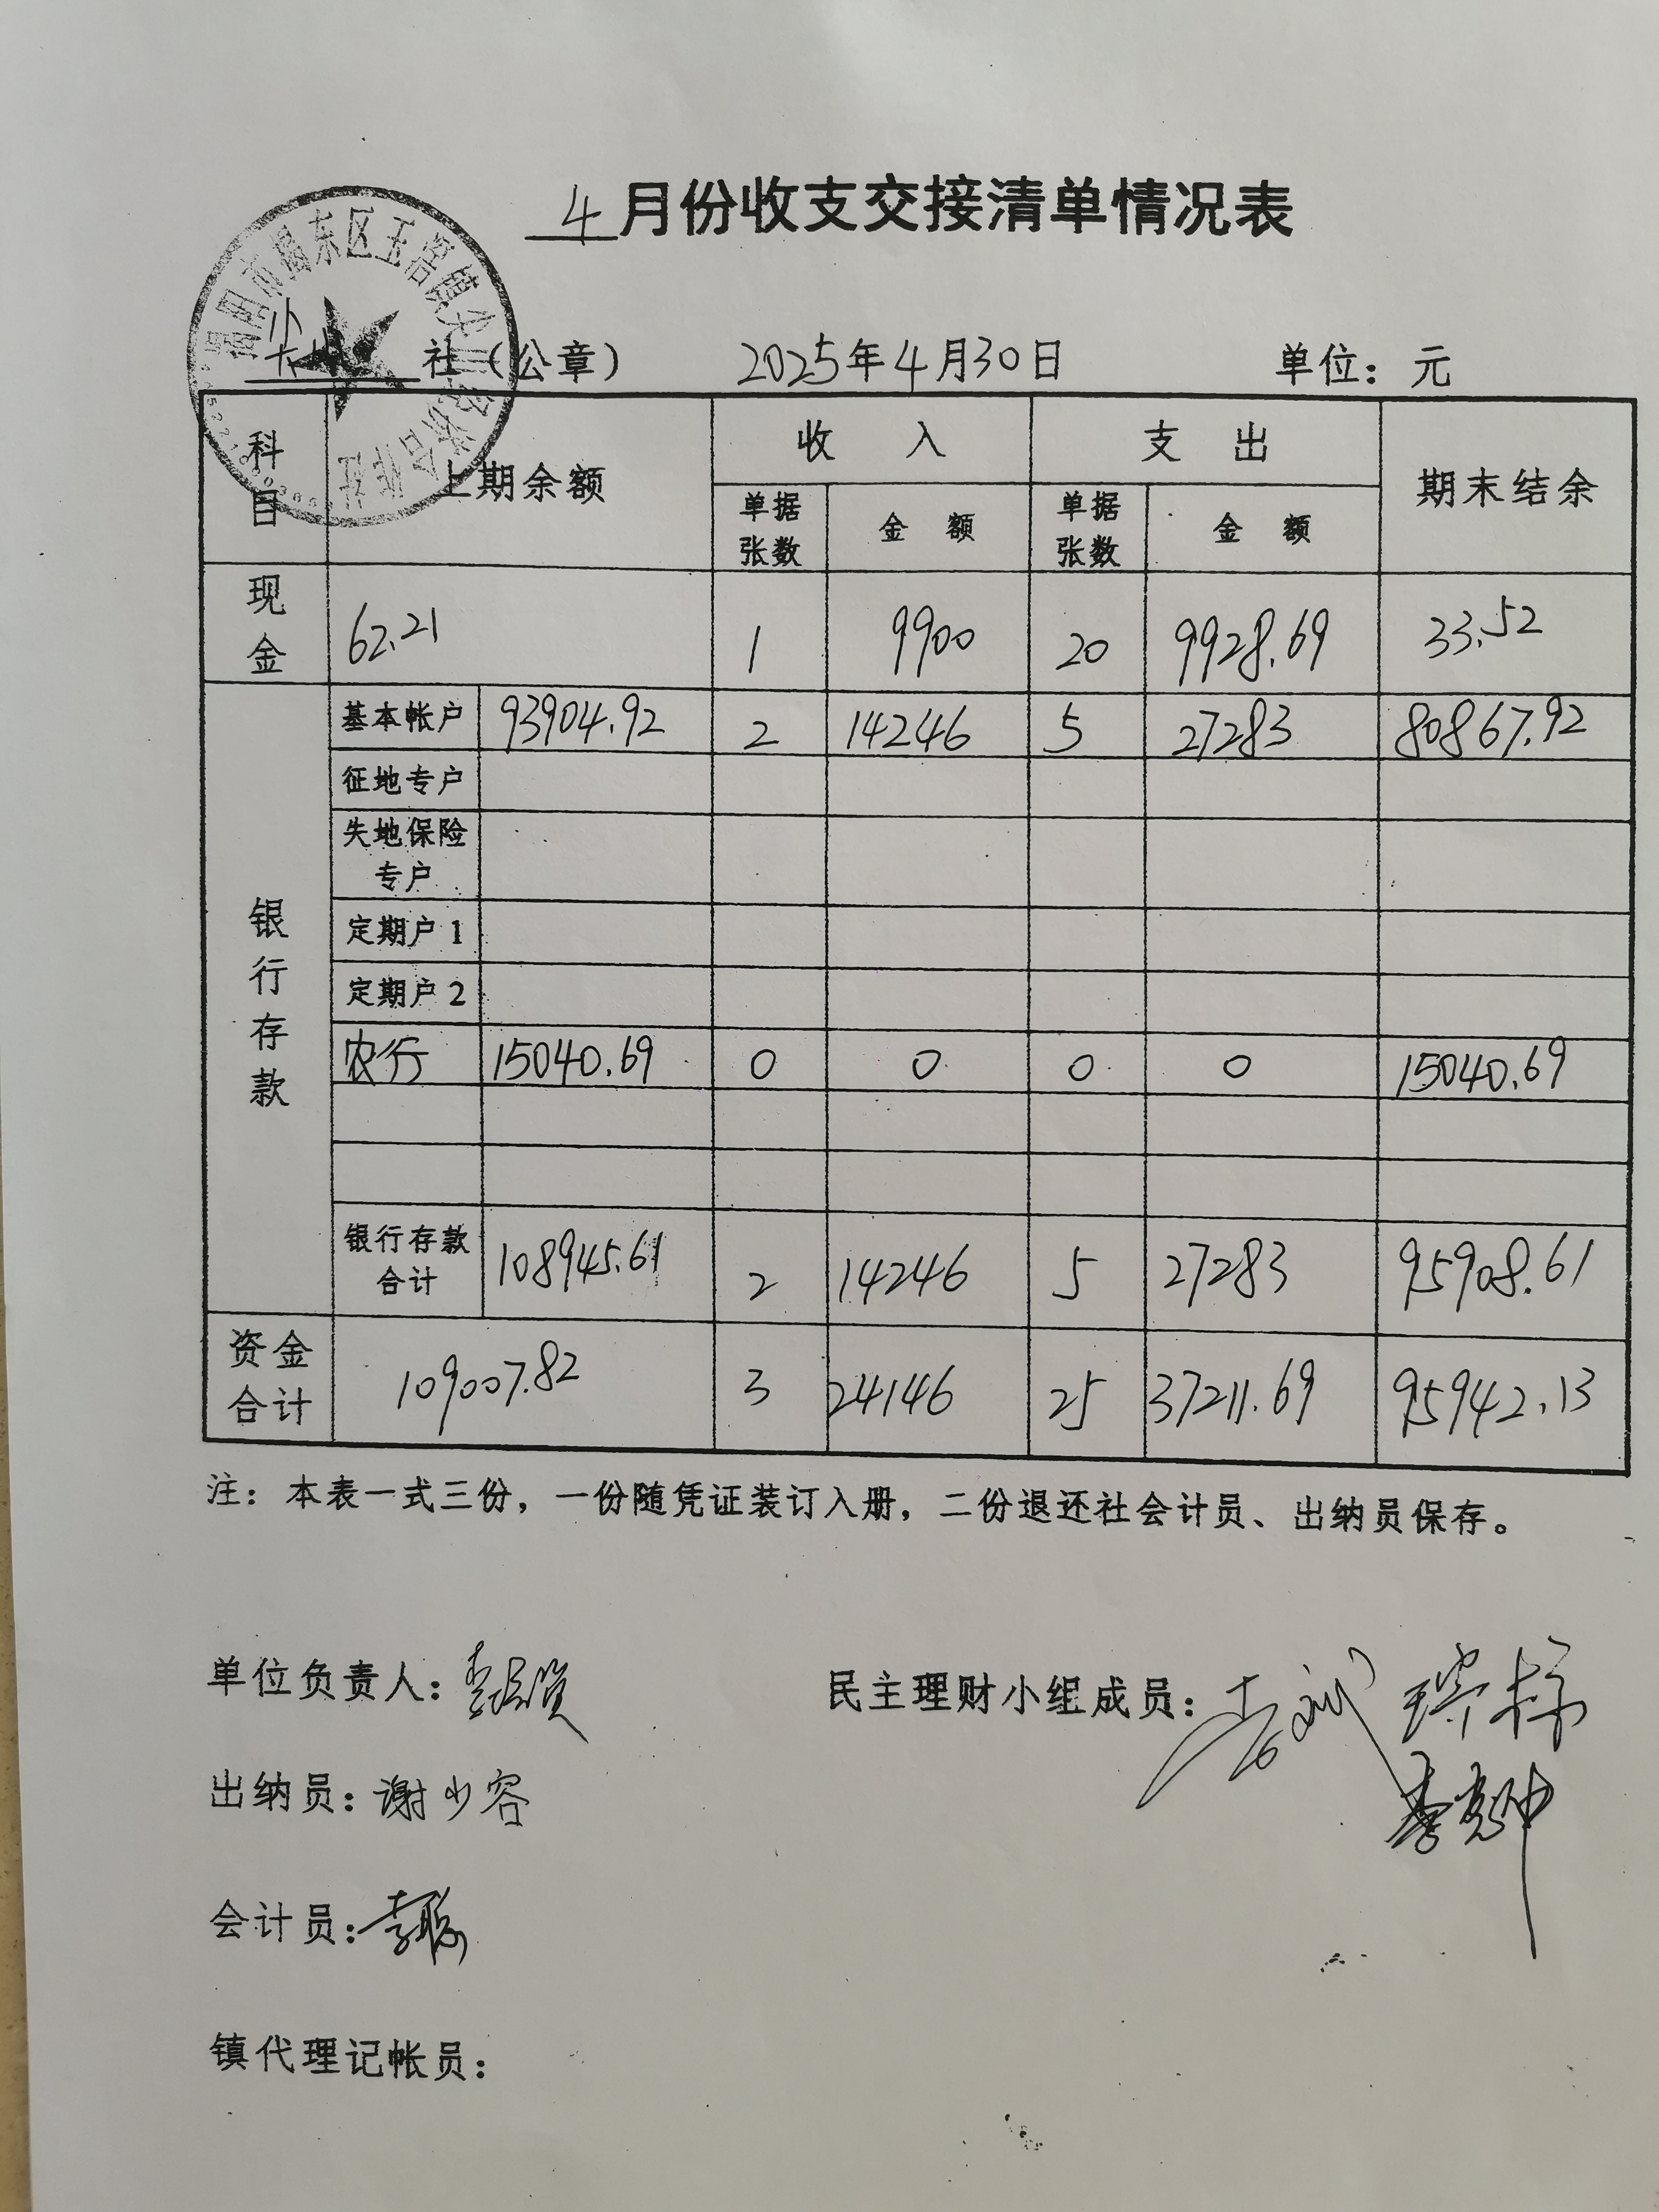 4月份收支交接清单情况表
社（公章） 2025年4月30日 单位：元
科目 上期余额 收入 支出 期末结余
单据张数 金额 单据张数 金额
现金 62.21 1 9900 20 9928.69 33.52
银行存款
基本帐户 93904.92 2 14246 5 27283 80867.92
征地专户
失地保险专户
定期户1
定期户2
农行 15040.69 0 0 0 0 15040.69
银行存款合计 108945.61 2 14246 5 27283 95908.61
资金合计 109007.82 3 24146 25 37211.69 95942.13
注：本表一式三份，一份随凭证装订入册，二份退还社会计员、出纳员保存。
单位负责人： 民主理财小组成员：
出纳员：谢少容
会计员：李聪
镇代理记帐员：